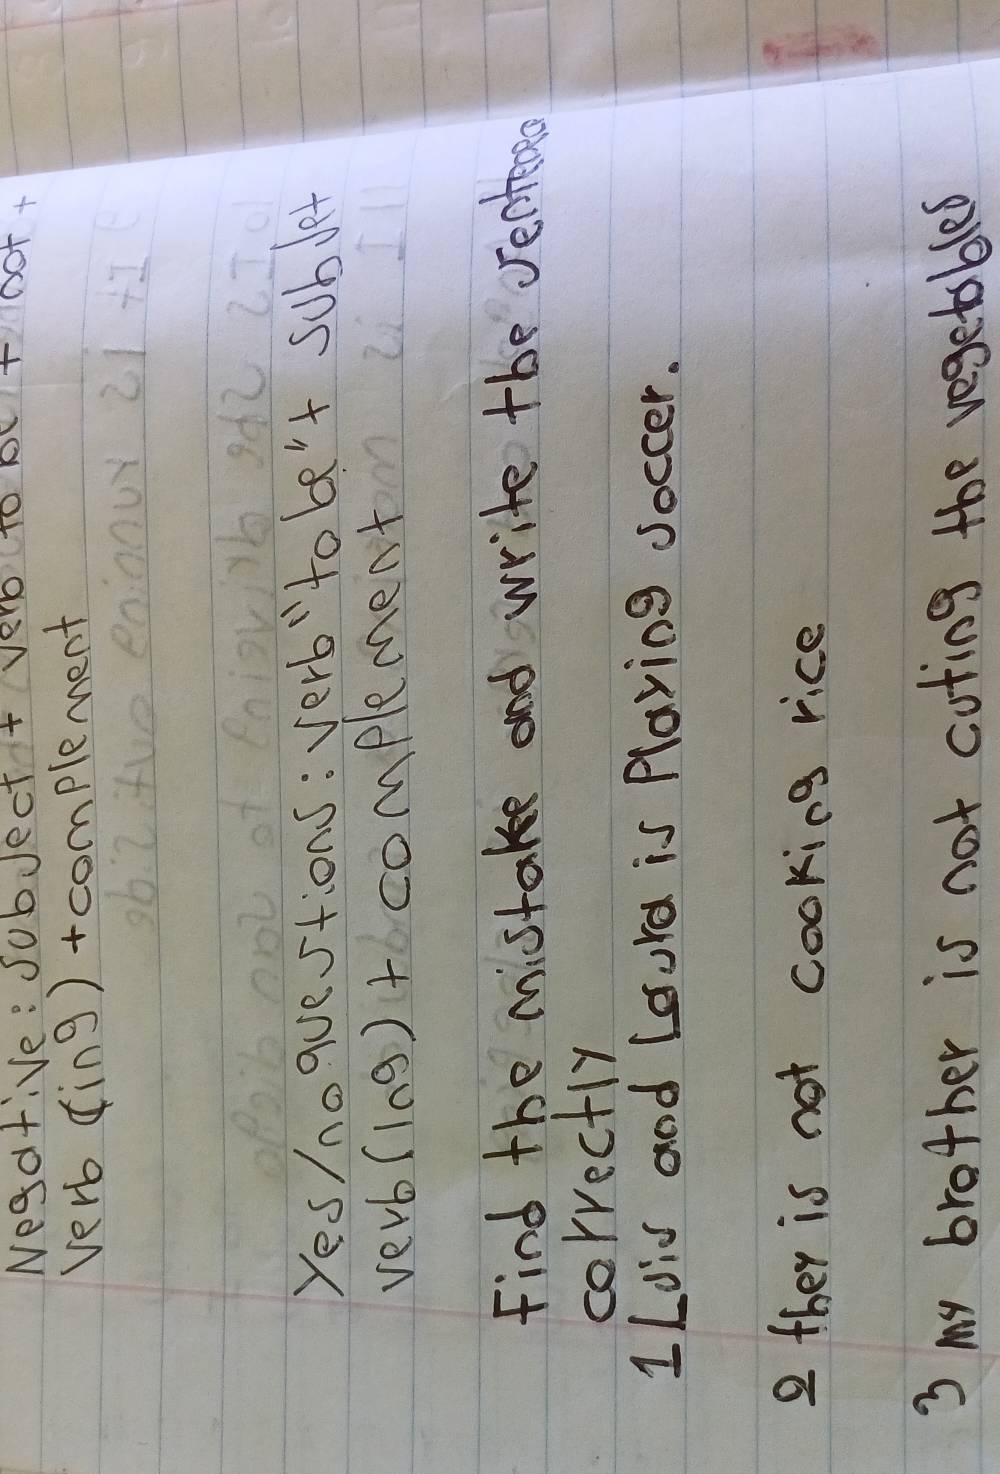 Negative: Subject + verb to be + not +
verb (ing) + complement
Yes/no questions: verb "to be" + subjet
verb (ing) + complement
Find the mistake and write the
correctly
1 Luis and Laura is Playing soccer.
2 they is not cooking rice
3 my brother is not cuting the vegetables